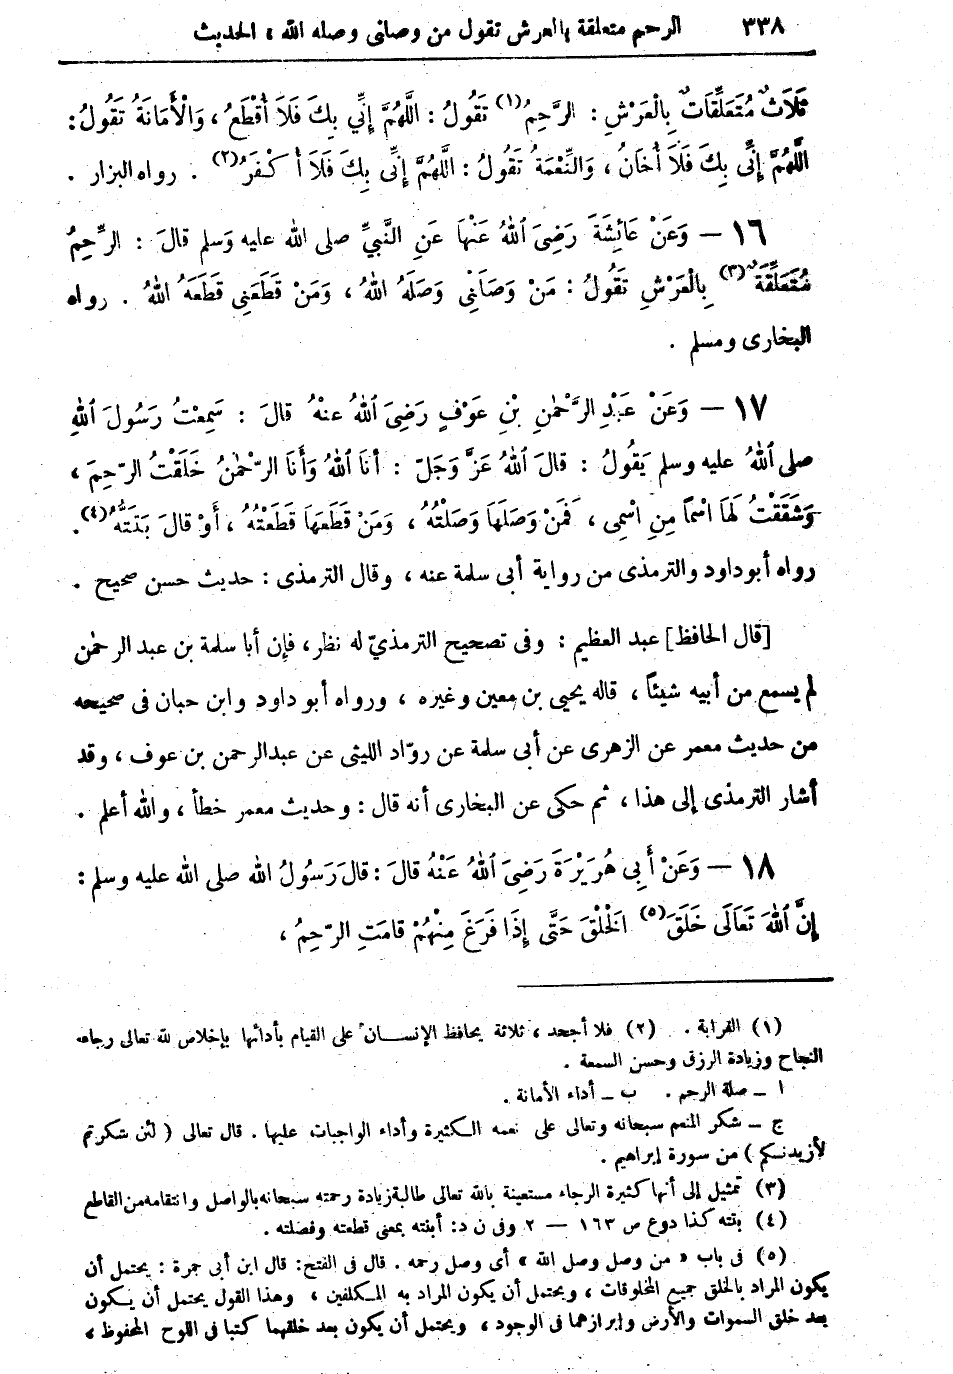 ٣٣٨ الرحم متعلقة بالعرش تقول من وصلنى وصله الله ، الحديث
ثَلَاثٌ مُتَعَلِّقَاتٌ بِالْعَرْشِ : الرَّحِمُ (١) تَقُولُ : اللَّهُمَّ إِنِّي بِكَ فَلَا أُقْطَعُ ، وَالْأَمَانَةُ تَقُولُ :
اللَّهُمَّ إِنِّى بِكَ فَلَا أُخَانُ ، وَالنِّعْمَةُ تَقُولُ : اللَّهُمَّ إِنِّى بِكَ فَلَا أُكْفَرُ (٢) . رواه البزار .
١٦ – وَعَنْ عَائِشَةَ رَضِىَ اللهُ عَنْهَا عَنِ النَّبِيِّ صلى الله عليه وَسلم قالَ : الرَّحِمُ
مُتَعَلِّقَةٌ (٣) بِالْعَرْشِ تَقُولُ : مَنْ وَصَلَنِى وَصَلَهُ اللهُ ، وَمَنْ قَطَعَنِى قَطَعَهُ اللهُ . رواه
البخارى ومسلم .
١٧ – وَعَنْ عَبْدِ الرَّحْمٰنِ بْنِ عَوْفٍ رَضِىَ اللهُ عنْهُ قالَ : سَمِعْتُ رَسُولَ اللهِ
صلى اللهُ عليه وسلم يَقُولُ : قالَ اللهُ عَزَّ وَجَلّ : أنَا اللهُ وَأَنَا الرَّحْمٰنُ خَلَقْتُ الرّحِمَ ،
وَشَقَقْتُ لَهَا اسْماً مِنِ اسْمِى ، فَمَنْ وَصَلَهَا وَصَلْتُهُ ، وَمَنْ قَطَعَهَا قَطَعْتُهُ ، أَوْ قالَ بَتَتُّهُ (٤) .
رواه أبو داود والترمذى من رواية أبى سلمة عنه ، وقال الترمذى : حديث حسن صحيح .
[قال الحافظ] عبد العظيم : وفى تصحيح الترمذيّ له نظر ، فإن أبا سلمة بن عبد الرحمٰن
لم يسمع من أبيه شيئاً ، قاله يحيى بن معين وغيره ، ورواه أبو داود وابن حبان فى صحيحه
من حديث معمر عن الزهرى عن أبى سلمة عن روّاد الليثى عن عبدالرحمن بن عوف ، وقد
أشار الترمذى إلى هذا ، ثم حكى عن البخارى أنه قال : وحديث معمر خطأ ، والله أعلم .
١٨ – وَعَنْ أَبِى هُرَيْرَةَ رَضِىَ اللهُ عَنْهُ قالَ : قالَ رَسُولُ الله صلى الله عليه وسلم :
إِنَّ اللهَ تَعَالَى خَلَقَ (٥) الْخَلْقَ حَتَّى إِذَا فَرَغَ مِنْهُمْ قامَتِ الرّحِمُ ،
(١) القرابة . (٢) فلا أجحد ، ثلاثة يحافظ الإنسان على القيام بأدائها بإخلاص لله تعالى رجاء
النجاح وزيادة الرزق وحسن السمعة .
ا – صلة الرحم . ب – أداء الأمانة .
ج – شكر المنعم سبحانه وتعالى على نعمه الكثيرة وأداء الواجبات عليها . قال تعالى ( لئن شكرتم
لأزيدنكم ) من سورة إبراهيم .
(٣) تمثيل إلى أنها كثيرة الرجاء مستعينة بالله تعالى طالبة زيادة رحمته سبحانه بالواصل وانتقامه من القاطع
(٤) بتته كذا دوع ص ١٦٣ — ٢ وفى ن د : أبنته بمعنى قطعته وفصلته .
(٥) فى باب « من وصل وصل الله » أى وصل رحمه . قال فى الفتح : قال ابن أبى جمرة : يحتمل أن
يكون المراد بالخلق جميع المخلوقات ، ويحتمل أن يكون المراد به المكلفين ، وهذا القول يحتمل أن يكون
بعد خلق السموات والأرض وإبرازهما فى الوجود ، ويحتمل أن يكون بعد خلقهما كتبا فى اللوح المحفوظ ،